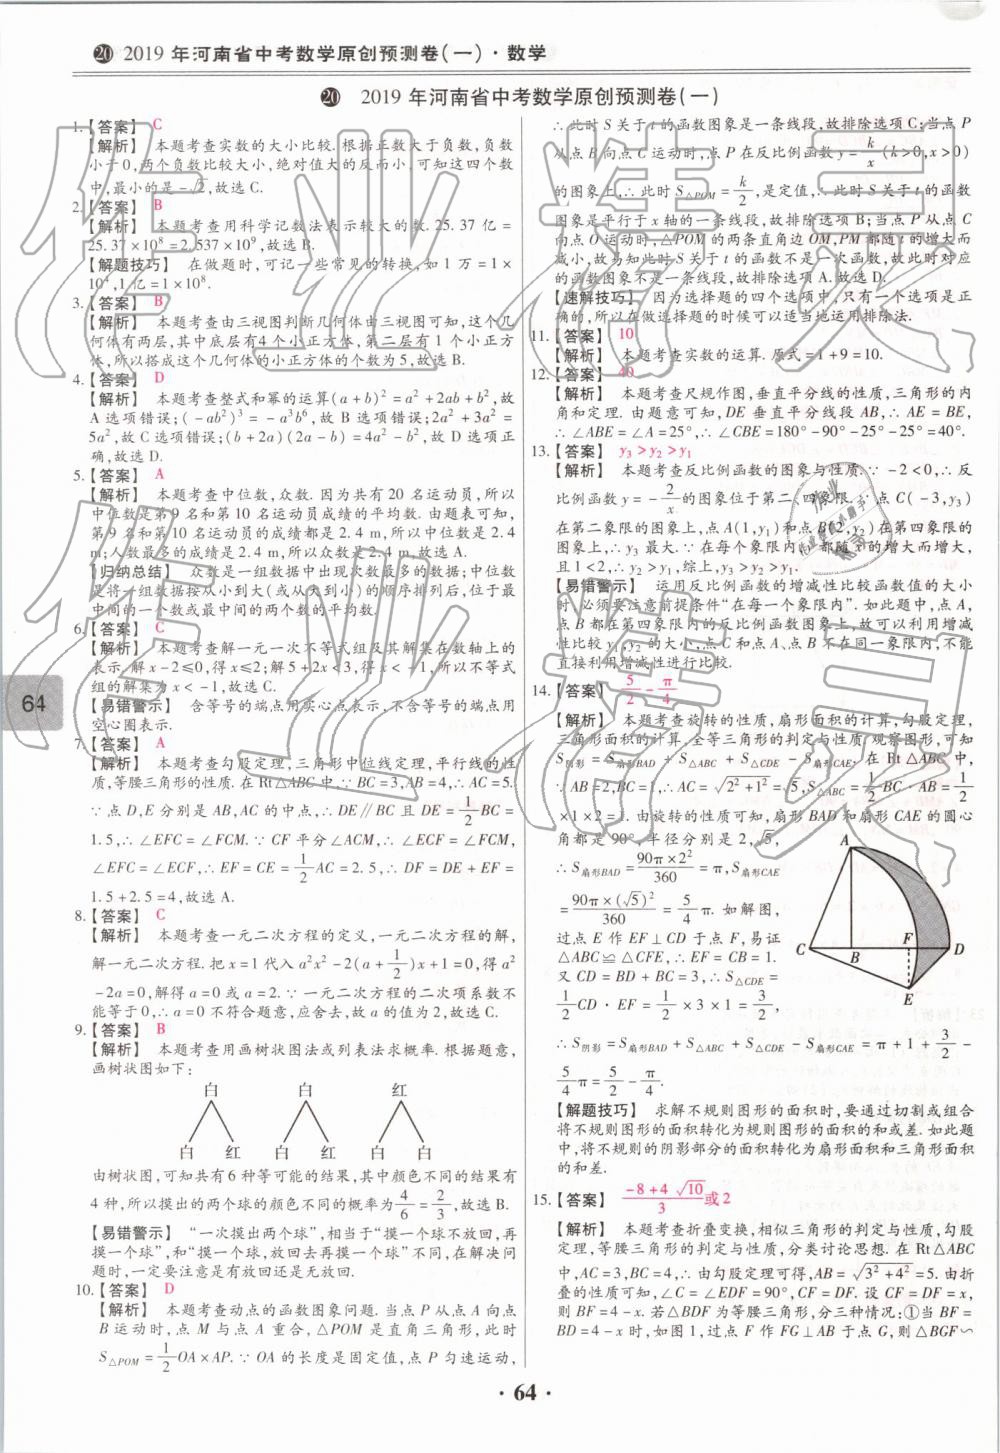 ⑳ 2019 年河南省中考数学原创预测卷(一)·数学
⑳ 2019 年河南省中考数学原创预测卷(一)
1.【答案】 C
【解析】 本题考查实数的大小比较. 根据正数大于负数,负数
小于0,两个负数比较大小,绝对值大的反而小,可知这四个数
中,最小的是 -√2,故选 C.
2.【答案】 B
【解析】 本题考查用科学记数法表示较大的数. 25.37 亿 =
25.37×10⁸ = 2.537×10⁹,故选 B.
【解题技巧】 在做题时,可记一些常见的转换,如 1 万 = 1×
10⁴,1 亿 = 1×10⁸.
3.【答案】 B
【解析】 本题考查由三视图判断几何体由三视图可知,这个几
何体有两层,其中底层有4 个小正方体,第二层有 1 个小正方
体,所以搭成这个几何体的小正方体的个数为 5,故选 B.
4.【答案】 D
【解析】 本题考查整式和幂的运算(a+b)² = a²+2ab+b²,故
A 选项错误;(-ab²)³ = -a³b⁶,故 B 选项错误;2a²+3a² =
5a²,故 C 选项错误;(b+2a)(2a-b) = 4a²-b²,故 D 选项正
确,故选 D.
5.【答案】 A
【解析】 本题考查中位数,众数. 因为共有 20 名运动员,所以
中位数是第 9 名和第 10 名运动员成绩的平均数. 由题表可知,
第 9 名和第 10 名运动员的成绩都是 2.4 m,所以中位数是 2.4
m;人数最多的成绩是 2.4 m,所以众数是 2.4 m,故选 A.
【归纳总结】 众数是一组数据中出现次数最多的数据;中位数
是将一组数据按从小到大(或从大到小)的顺序排列后,位于最
中间的一个数或最中间的两个数的平均数.
6.【答案】 C
【解析】 本题考查解一元一次不等式组及其解集在数轴上的
表示. 解 x-2≤0,得 x≤2;解 5+2x<3,得 x<-1,所以不等式
组的解集为 x<-1,故选 C.
【易错警示】 含等号的端点用实心点表示,不含等号的端点用
空心圈表示.
7.【答案】 A
【解析】 本题考查勾股定理,三角形中位线定理,平行线的性
质,等腰三角形的性质. 在 Rt△ABC 中,∵BC=3,AB=4,∴AC=5.
∵点 D,E 分别是 AB,AC 的中点,∴DE∥BC 且 DE=1/2 BC=
1.5,∴∠EFC=∠FCM. ∵CF 平分∠ACM,∴∠ECF=∠FCM,
∠EFC=∠ECF,∴EF=CE=1/2 AC=2.5,∴DF=DE+EF=
1.5+2.5=4,故选 A.
8.【答案】 C
【解析】 本题考查一元二次方程的定义,一元二次方程的解,
解一元二次方程. 把 x=1 代入 a²x²-2(a+1/2)x+1=0,得 a²
-2a=0,解得 a=0 或 a=2. ∵一元二次方程的二次项系数不
能等于 0,∴a=0 不符合题意,应舍去,故 a 的值为 2,故选 C.
9.【答案】 B
【解析】 本题考查用画树状图法或列表法求概率. 根据题意,
画树状图如下:
白 白 红
白 红 白 红 白 白
由树状图,可知共有 6 种等可能的结果,其中颜色不同的结果有
4 种,所以摸出的两个球的颜色不同的概率为 4/6=2/3,故选 B.
【易错警示】 “一次摸出两个球”,相当于“摸一球不放回,再
摸一个球”,和“摸一个球,放回去再摸一个球”不同,在解决问
题时,一定要注意是有放回还是无放回.
10.【答案】 D
【解析】 本题考查动点的函数图象问题. 当点 P 从点 A 向点
B 运动时,点 M 与点 A 重合,△POM 是直角三角形,此时
S△POM=1/2 OA×AP. ∵OA 的长度是固定值,点 P 匀速运动,
∴此时 S 关于 t 的函数图象是一条线段,故排除选项 C;当点 P
从点 B 向点 C 运动时,点 P 在反比例函数 y=k/x (k>0,x>0)
的图象上,∴此时 S△POM=k/2,是定值,∴此时 S 关于 t 的函数
图象是平行于 x 轴的一条线段,故排除选项 B;当点 P 从点 C
向点 O 运动时,△POM 的两条直角边 OM,PM 都随 t 的增大而
减小,故易知此时 S 关于 t 的函数不是一次函数,故此时对应
的函数图象不是一条线段,故排除选项 A. 故选 D.
【速解技巧】 因为选择题的四个选项中,只有一个选项是正
确的,所以在做选择题的时候可以适当地运用排除法.
11.【答案】 10
【解析】 本题考查实数的运算. 原式=1+9=10.
12.【答案】 40
【解析】 本题考查尺规作图,垂直平分线的性质,三角形的内
角和定理. 由题意可知,DE 垂直平分线段 AB,∴AE=BE,
∴∠ABE=∠A=25°,∴∠CBE=180°-90°-25°-25°=40°.
13.【答案】 y₃>y₂>y₁
【解析】 本题考查反比例函数的图象与性质. ∵-2<0,∴反
比例函数 y=-2/x 的图象位于第二、四象限. ∵点 C(-3,y₃)
在第二象限的图象上,点 A(1,y₁)和点 B(2,y₂)在第四象限的
图象上,∴y₃ 最大. ∵在每个象限内,y 都随 x 的增大而增大,
且 1<2,∴y₂>y₁,综上,y₃>y₂>y₁.
【易错警示】 运用反比例函数的增减性比较函数值的大小
时,必须要注意前提条件“在每一个象限内”. 如此题中,点 A,
点 B 都在第四象限内的反比例函数图象上,故可以利用增减
性比较 y₁,y₂ 的大小;点 C 和点 A、点 B 不在同一象限内,不能
直接利用增减性进行比较.
14.【答案】 5/2-π/4
【解析】 本题考查旋转的性质,扇形面积的计算,勾股定理,
三角形面积的计算,全等三角形的判定与性质. 观察图形,可知
S阴影=S扇形BAD+S△ABC+S△CDE-S扇形CAE. 在 Rt△ABC 中,
∵AB=2,BC=1,∴AC=√(2²+1²)=√5,S△ABC=1/2 BC·AB=1/2
×1×2=1. 由旋转的性质可知,扇形 BAD 和扇形 CAE 的圆心
角都是 90°,半径分别是 2,√5,
∴S扇形BAD=90π×2²/360=π,S扇形CAE
=90π×(√5)²/360=5/4 π. 如解图,
过点 E 作 EF⊥CD 于点 F,易证
△ABC≌△CFE,∴EF=CB=1.
又 CD=BD+BC=3,∴S△CDE=
1/2 CD·EF=1/2×1×3=3/2,
A
C B F D
E
∴S阴影=S扇形BAD+S△ABC+S△CDE-S扇形CAE=π+1+3/2-
5/4 π=5/2-π/4.
【解题技巧】 求解不规则图形的面积时,要通过切割或组合
将不规则图形的面积转化为规则图形的面积的和或差. 如此题
中,将不规则的阴影部分的面积转化为扇形面积和三角形面积
的和差.
15.【答案】 (-8+4√10)/3 或 2
【解析】 本题考查折叠变换,相似三角形的判定与性质,勾股
定理,等腰三角形的判定与性质,分类讨论思想. 在 Rt△ABC
中,AC=3,BC=4,∴由勾股定理可得,AB=√(3²+4²)=5. 由折
叠的性质可得,∠C=∠EDF=90°,CF=DF. 设 CF=DF=x,
则 BF=4-x. 若△BDF 为等腰三角形,分三种情况:①当 BF=
BD=4-x 时,如图 1,过点 F 作 FG⊥AB 于点 G,则△BGF∽
64
· 64 ·
作业精灵
作业精灵